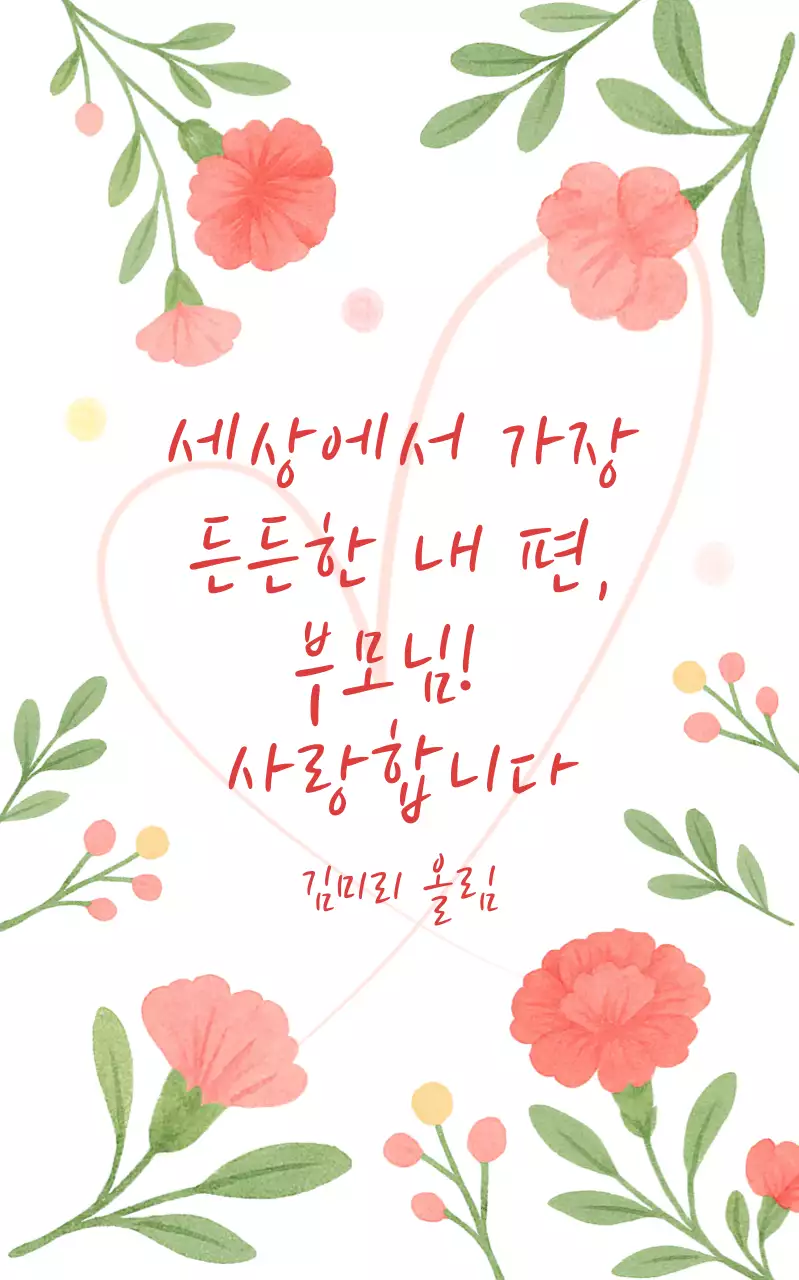 세상에서 가장
든든한 내 편,
부모님!
사랑합니다
김미리 올림